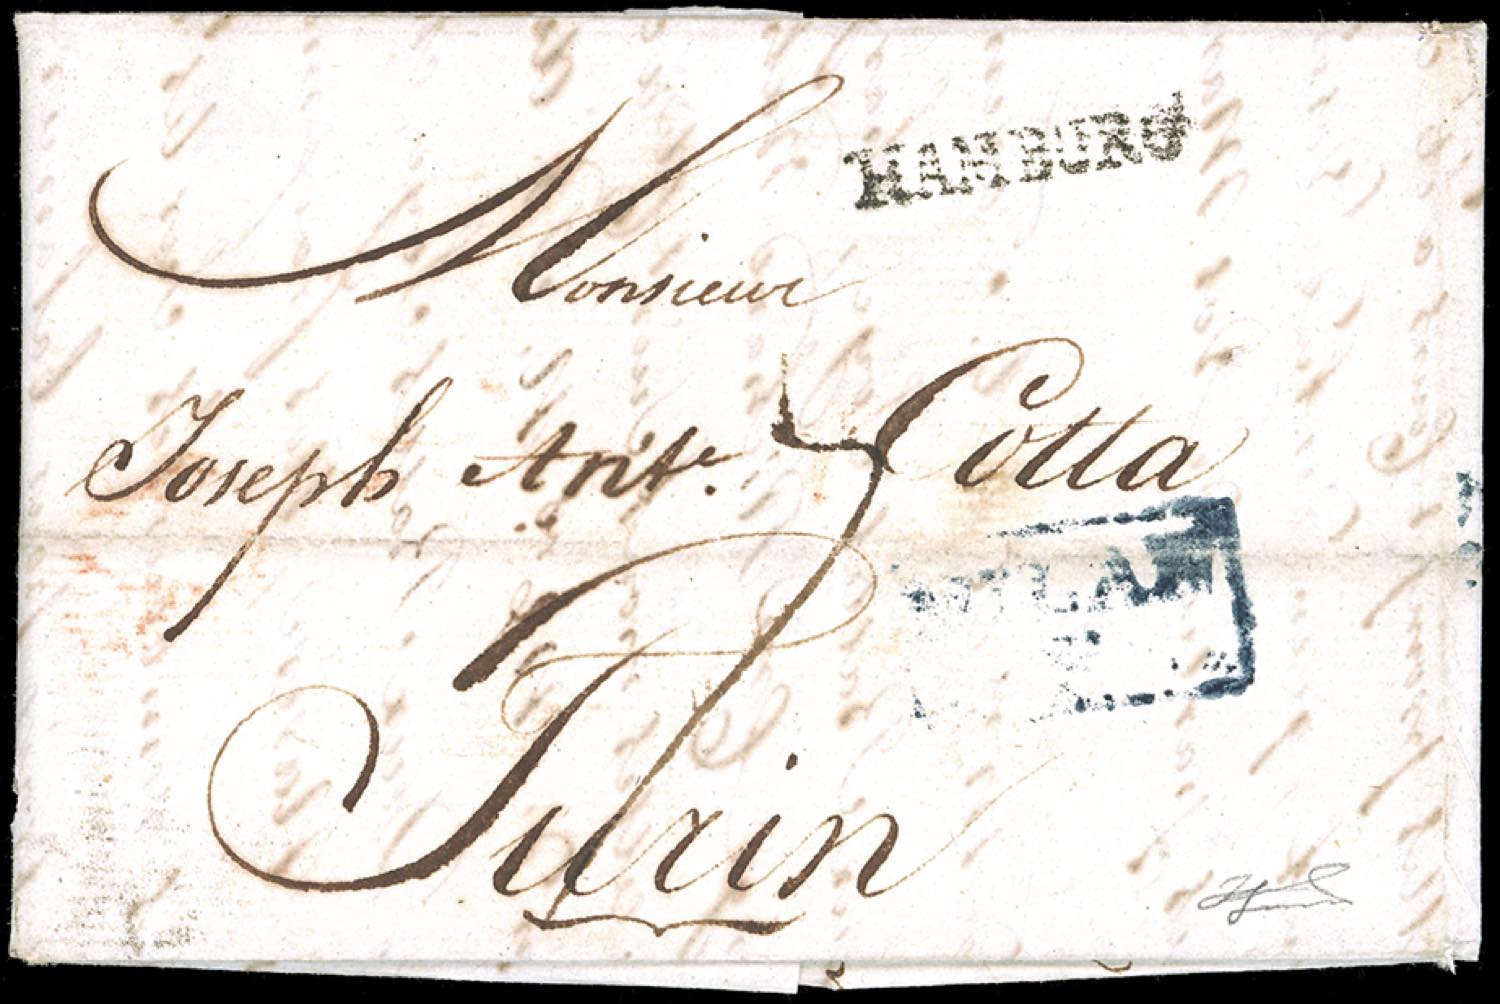 HAMBURG
Monsieur
Joseph Ant.e Cotta
Turin